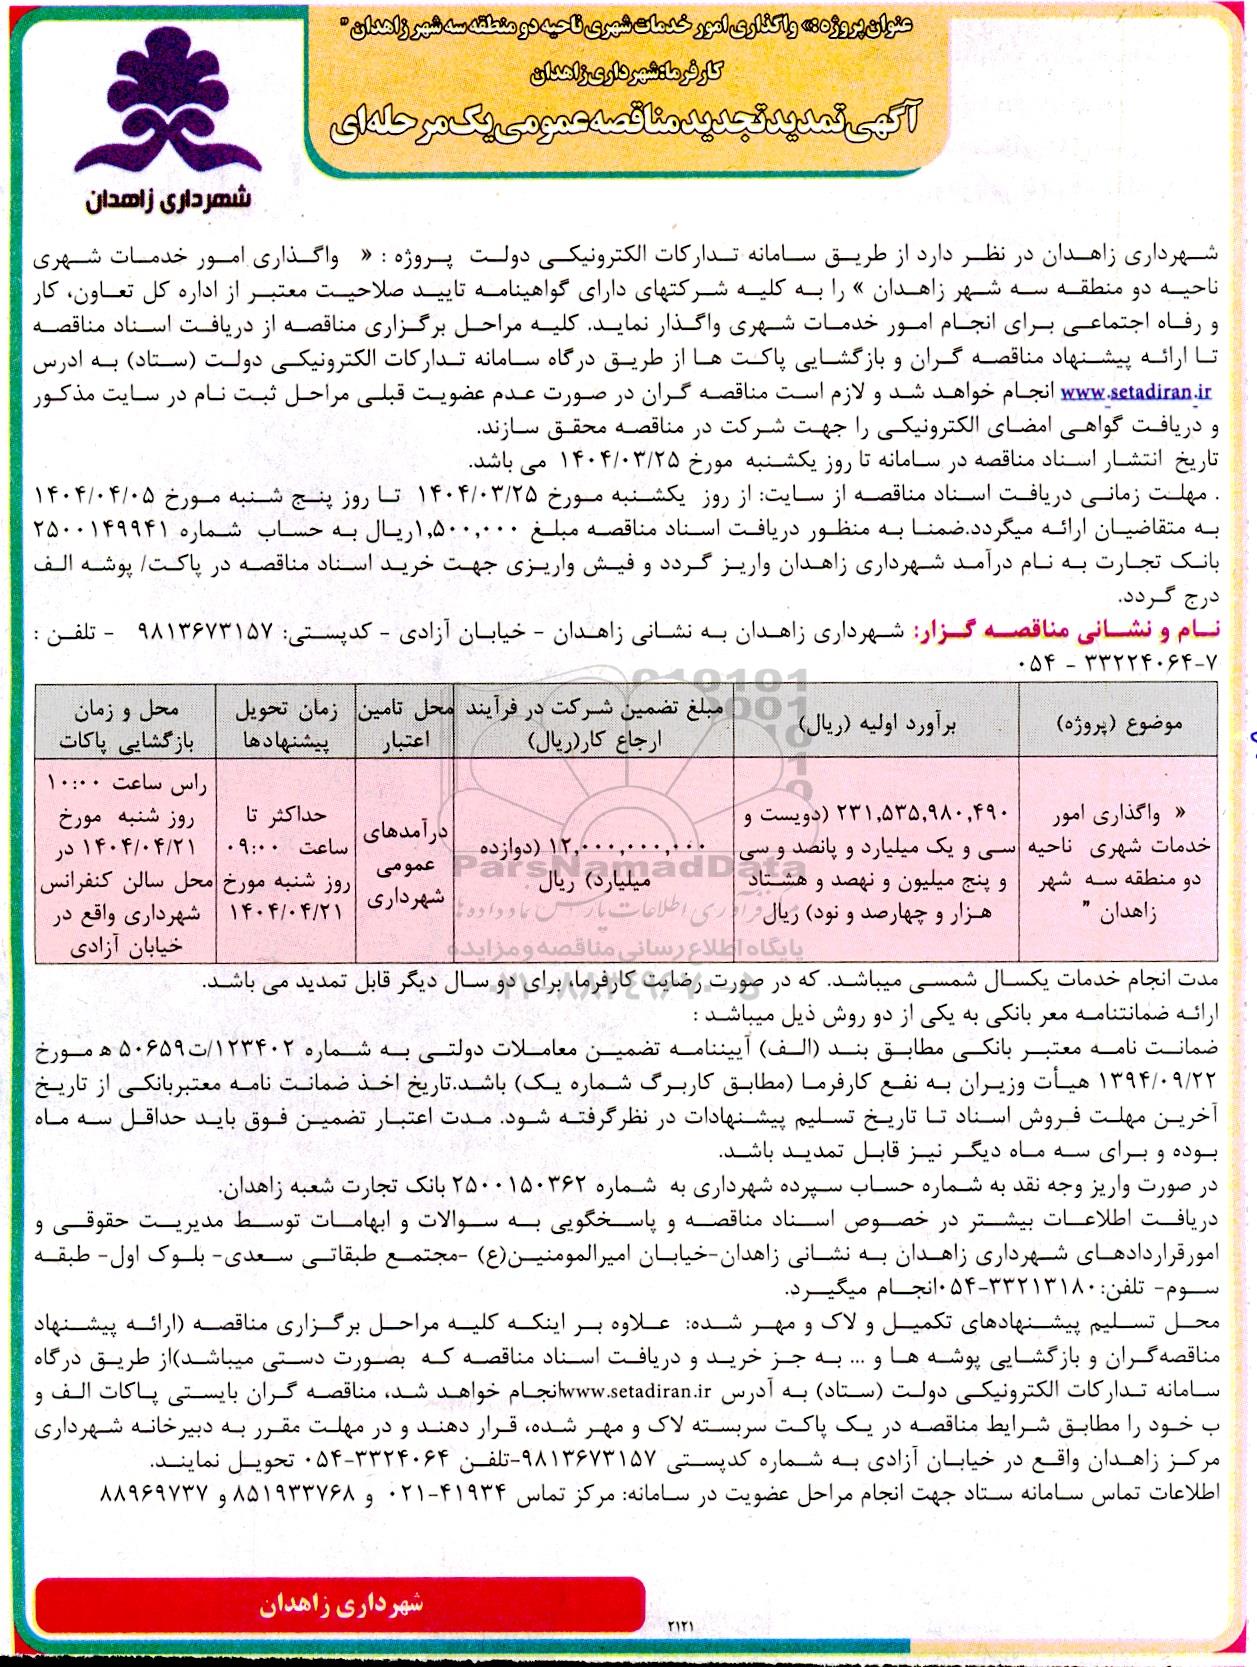 عنوان پروژه :« واگذاری امور خدمات شهری ناحیه دو منطقه سه شهر زاهدان "
کارفرما:شهرداری زاهدان
آگهی تمدید تجدید مناقصه عمومی یک مرحله‌ای
شهرداری زاهدان
شهرداری زاهدان در نظر دارد از طریق سامانه تدارکات الکترونیکی دولت پروژه : « واگذاری امور خدمات شهری
ناحیه دو منطقه سه شهر زاهدان » را به کلیه شرکتهای دارای گواهینامه تایید صلاحیت معتبر از اداره کل تعاون، کار
و رفاه اجتماعی برای انجام امور خدمات شهری واگذار نماید. کلیه مراحل برگزاری مناقصه از دریافت اسناد مناقصه
تا ارائه پیشنهاد مناقصه گران و بازگشایی پاکت ها از طریق درگاه سامانه تدارکات الکترونیکی دولت (ستاد) به ادرس
www.setadiran.ir انجام خواهد شد و لازم است مناقصه گران در صورت عدم عضویت قبلی مراحل ثبت نام در سایت مذکور
و دریافت گواهی امضای الکترونیکی را جهت شرکت در مناقصه محقق سازند.
تاریخ انتشار اسناد مناقصه در سامانه تا روز یکشنبه مورخ ۱۴۰۴/۰۳/۲۵ می باشد.
. مهلت زمانی دریافت اسناد مناقصه از سایت: از روز یکشنبه مورخ ۱۴۰۴/۰۳/۲۵ تا روز پنج شنبه مورخ ۱۴۰۴/۰۴/۰۵
به متقاضیان ارائه میگردد.ضمنا به منظور دریافت اسناد مناقصه مبلغ ۱,۵۰۰,۰۰۰ریال به حساب شماره ۲۵۰۰۱۴۹۹۴۱
بانک تجارت به نام درآمد شهرداری زاهدان واریز گردد و فیش واریزی جهت خرید اسناد مناقصه در پاکت/ پوشه الف
درج گردد.
نام و نشانی مناقصه گزار: شهرداری زاهدان به نشانی زاهدان - خیابان آزادی - کدپستی: ۹۸۱۳۶۷۳۱۵۷ - تلفن :
۳۳۲۲۴۰۶۴-۷ - ۰۵۴
موضوع (پروژه)
برآورد اولیه (ریال)
مبلغ تضمین شرکت در فرآیند
ارجاع کار(ریال)
محل تامین
اعتبار
زمان تحویل
پیشنهادها
محل و زمان
بازگشایی پاکات
« واگذاری امور
خدمات شهری ناحیه
دو منطقه سه شهر
زاهدان "
۲۳۱,۵۳۵,۹۸۰,۴۹۰ (دویست و
سی و یک میلیارد و پانصد و سی
و پنج میلیون و نهصد و هشتاد
هزار و چهارصد و نود) ریال
۱۲,۰۰۰,۰۰۰,۰۰۰ (دوازده
میلیارد) ریال
درآمدهای
عمومی
شهرداری
حداکثر تا
ساعت ۰۹:۰۰
روز شنبه مورخ
۱۴۰۴/۰۴/۲۱
راس ساعت ۱۰:۰۰
روز شنبه مورخ
۱۴۰۴/۰۴/۲۱ در
محل سالن کنفرانس
شهرداری واقع در
خیابان آزادی
ParsNamadData
پایگاه اطلاع رسانی مناقصه و مزایده
مدت انجام خدمات یکسال شمسی میباشد. که در صورت رضایت کارفرما، برای دو سال دیگر قابل تمدید می باشد.
ارائه ضمانتنامه معر بانکی به یکی از دو روش ذیل میباشد :
ضمانت نامه معتبر بانکی مطابق بند (الف) آییننامه تضمین معاملات دولتی به شماره ۱۲۳۴۰۲/ت۵۰۶۵۹ ه مورخ
۱۳۹۴/۰۹/۲۲ هیأت وزیران به نفع کارفرما (مطابق کاربرگ شماره یک) باشد.تاریخ اخذ ضمانت نامه معتبربانکی از تاریخ
آخرین مهلت فروش اسناد تا تاریخ تسلیم پیشنهادات در نظرگرفته شود. مدت اعتبار تضمین فوق باید حداقل سه ماه
بوده و برای سه ماه دیگر نیز قابل تمدید باشد.
در صورت واریز وجه نقد به شماره حساب سپرده شهرداری به شماره ۲۵۰۰۱۵۰۳۶۲ بانک تجارت شعبه زاهدان.
دریافت اطلاعات بیشتر در خصوص اسناد مناقصه و پاسخگویی به سوالات و ابهامات توسط مدیریت حقوقی و
امورقراردادهای شهرداری زاهدان به نشانی زاهدان-خیابان امیرالمومنین(ع) -مجتمع طبقاتی سعدی- بلوک اول- طبقه
سوم- تلفن:۳۳۲۱۳۱۸۰-۰۵۴انجام میگیرد.
محل تسلیم پیشنهادهای تکمیل و لاک و مهر شده: علاوه بر اینکه کلیه مراحل برگزاری مناقصه (ارائه پیشنهاد
مناقصه‌گران و بازگشایی پوشه ها و ... به جز خرید و دریافت اسناد مناقصه که بصورت دستی میباشد)از طریق درگاه
سامانه تدارکات الکترونیکی دولت (ستاد) به آدرس www.setadiran.irانجام خواهد شد، مناقصه گران بایستی پاکات الف و
ب خود را مطابق شرایط مناقصه در یک پاکت سربسته لاک و مهر شده، قرار دهند و در مهلت مقرر به دبیرخانه شهرداری
مرکز زاهدان واقع در خیابان آزادی به شماره کدپستی ۹۸۱۳۶۷۳۱۵۷-تلفن ۳۳۲۴۰۶۴-۰۵۴ تحویل نمایند.
اطلاعات تماس سامانه ستاد جهت انجام مراحل عضویت در سامانه: مرکز تماس ۴۱۹۳۴-۰۲۱ و ۸۵۱۹۳۳۷۶۸ و ۸۸۹۶۹۷۳۷
شهرداری زاهدان
۲۱۲۱